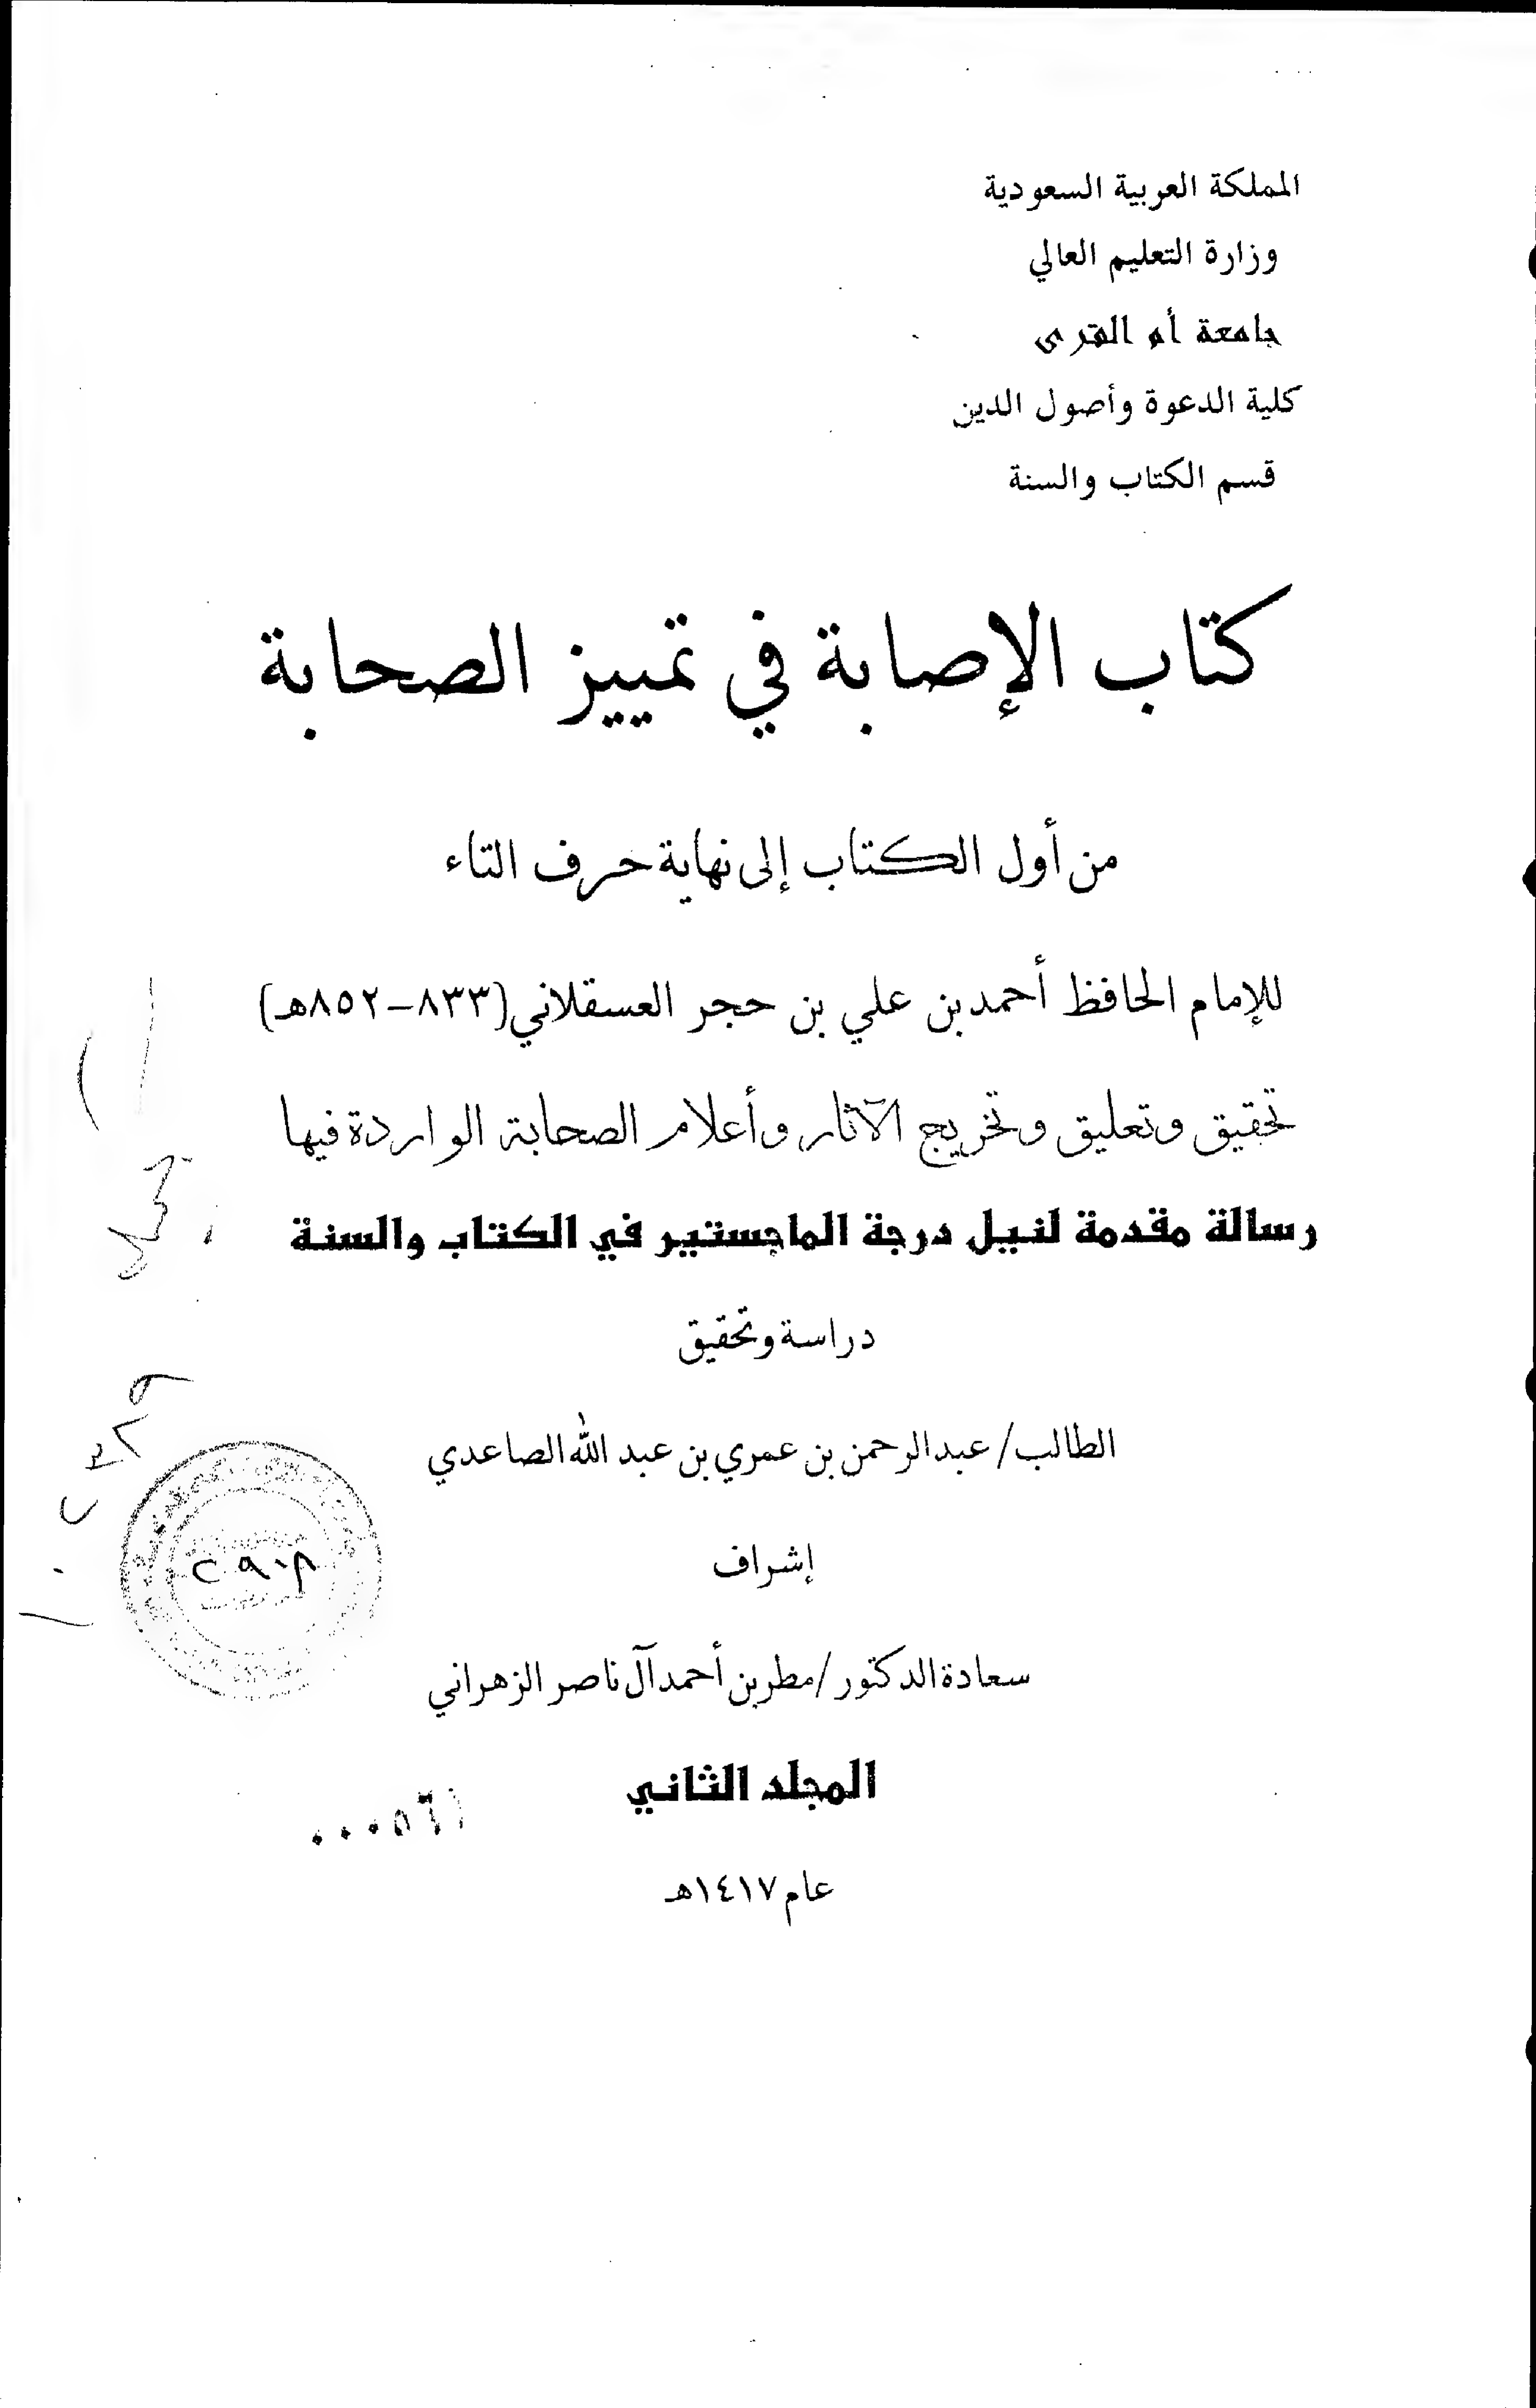 المملكة العربية السعودية
وزارة التعليم العالي
جامعة أم القرى
كلية الدعوة وأصول الدين
قسم الكتاب والسنة
كتاب الإصابة في تمييز الصحابة
من أول الكتاب إلى نهاية حرف التاء
للإمام الحافظ أحمد بن علي بن حجر العسقلاني (٨٣٣-٨٥٢هـ)
تحقيق وتعليق وتخريج الآثار وأعلام الصحابة الواردة فيها
رسالة مقدمة لنيل درجة الماجستير في الكتاب والسنة
دراسة وتحقيق
الطالب/ عبدالرحمن بن عمري بن عبد الله الصاعدي
إشراف
سعادة الدكتور/مطر بن أحمد آل ناصر الزهراني
المجلد الثاني
٠٠٠٥٦١
عام ١٤١٧هـ